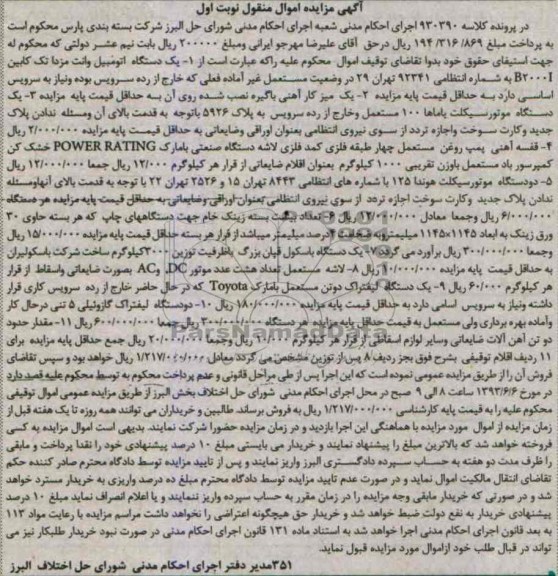 آگهی مزایده اموال منقول نوبت اول
در پرونده کلاسه ۹۳۰۳۹۰ اجرای احکام مدنی شعبه اجرای احکام مدنی شورای حل البرز شرکت بسته بندی پارس محکوم است
به پرداخت مبلغ ۱۹۴/۳۱۶/۸۶۹ ریال درحق آقای علیرضا مهرجو ایرانی ومبلغ ۲۰۰۰۰۰ ریال بابت نیم عشر دولتی که محکوم له
جهت استیفای حقوق خود بدوا تقاضای توقیف اموال محکوم علیه راکه عبارت است از ۱- یک دستگاه اتومبیل وانت مزدا تک کابین
B2000I به شماره انتظامی ۹۲۳۴۱ تهران ۲۹ در وضعیت مستعمل غیر آماده فعلی که خارج از رده سرویس بوده ونیاز به سرویس
اساسی دارد به حداقل قیمت پایه مزایده ۲- یک میز کار آهنی باگیره نصب شده روی آن به حداقل قیمت پایه مزایده ۳- یک
دستگاه موتورسیکلت یاماها ۱۰۰ مستعمل وخارج از رده سرویس به پلاک ۵۹۲۶ باتوجه به قدمت بالای آن ومسئله ندادن پلاک
جدید وکارت سوخت واجازه تردد از سوی نیروی انتظامی بعنوان اوراق وضایعاتی به حداقل قیمت پایه مزایده ۲/۰۰۰/۰۰۰ ریال
۴- قفسه آهنی پمپ روغن مستعمل چهار طبقه فلزی کمد فلزی لاشه دستگاه صنعتی بامارک POWER RATING خشک کن
کمپرسور باد مستعمل باوزن تقریبی ۱۰۰۰ کیلوگرم بعنوان اقلام ضایعاتی از قرار هر کیلوگرم ۱۲/۰۰۰ ریال جمعا ۱۲/۰۰۰/۰۰۰ ریال
۵- دودستگاه موتورسیکلت هوندا ۱۲۵ با شماره های انتظامی ۸۴۴۳ تهران ۱۵ و ۲۵۲۶ تهران ۲۲ با توجه به قدمت بالای آنهاومسئله
ندادن پلاک جدید وکارت سوخت اجازه تردد از سوی نیروی انتظامی بعنوان اوراقی وضایعاتی به حداقل قیمت پایه مزایده هر دستگاه
۶/۰۰۰/۰۰۰ ریال وجمعا معادل ۱۲/۰۰۰/۰۰۰ ریال ۶- تعداد بیست بسته زینک خام جهت دستگاههای چاپ که هر بسته حاوی ۳۰
ورق زینک به ابعاد ۱۱۴۵×۱۱۴۵ میلیمتروبه ضخامت ۴درصد میلیمتر میباشداز قرار هر بسته حداقل قیمت پایه مزایده ۱۵/۰۰۰/۰۰۰ ریال
وجمعا ۳۰۰/۰۰۰/۰۰۰ ریال برآورد می گردد ۷- یک دستگاه باسکول قپان بزرگ باظرفیت توزین ۳۰۰کیلوگرم ساخت شرکت باسکولیران
به حداقل قیمت پایه مزایده ۱۰/۰۰۰/۰۰۰ ریال ۸- لاشه مستعمل تعداد هشت عدد موتور DC, وAC بصورت ضایعاتی واسقاط از قرار
هر کیلوگرم ۶۰/۰۰۰ ریال ۹- یک دستگاه لیفتراک دوتن مستعمل بامارک Toyota که در حال حاضر خارج از رده سرویس کاری قرار
داشته ونیاز به سرویس اساسی دارد به حداقل قیمت پایه مزایده ۱۸۰/۰۰۰/۰۰۰ ریال ۱۰- دودستگاه لیفتراک گازوئیلی ۵ تنی درحال کار
واماده بهره برداری ولی مستعمل به قیمت حداقل پایه مزایده هر دستگاه ۳۰۰/۰۰۰/۰۰۰ ریال جمعا ۶۰۰/۰۰۰/۰۰۰ ریال ۱۱- مقدار حدود
دو تن آهن آلات ضایعاتی وسایر لوازم اسقاطی از قرار هر کیلوگرم ۱۰/۰۰۰ ریال وجمعا ۲۰/۰۰۰/۰۰۰ ریال جمع حداقل پایه مزایده برای
۱۱ ردیف اقلام توقیفی بشرح فوق بجز ردیف ۸ پس از توزین مشخص می گردد معادل ۱/۲۱۷/۰۰۰/۰۰۰ ریال خواهد بود و سپس تقاضای
فروش آن را از طریق مزایده عمومی نموده است که این اجرا پس از طی مراحل قانونی و عدم پرداخت محکوم به توسط محکوم علیه قصد دارد
در مورخ ۱۳۹۳/۶/۶ ساعت ۸ الی ۹ صبح در محل اجرای احکام مدنی شورای حل اختلاف بخش البرز از طریق مزایده عمومی اموال توقیفی
محکوم علیه را به قیمت پایه کارشناسی ۱/۲۱۷/۰۰۰/۰۰۰ ریال به فروش برساند. طالبین و خریداران می توانند همه روزه تا یک هفته قبل از
زمان مزایده از اموال مورد مزایده با هماهنگی این اجرا بازدید و در زمان مزایده حضورا شرکت نمایند. بدیهی است اموال مزایده به کسی
فروخته خواهد شد که بالاترین مبلغ را پیشنهاد نمایند و خریدار می بایستی مبلغ ۱۰ درصد پیشنهادی خود را نقدا پرداخت و مابقی
را ظرف مدت دو هفته به حساب سپرده دادگستری البرز واریز نمایند و پس از تایید مزایده توسط دادگاه محترم صادر کننده حکم
تقاضای انتقال مالکیت اموال نماید و در صورت عدم تایید مزایده توسط دادگاه محترم مبلغ ده درصد واریزی به خریدار مسترد خواهد
شد و در صورتی که خریدار مابقی وجه مزایده را در زمان مقرر به حساب سپرده واریز ننمایند و یا اعلام انصراف نماید مبلغ ۱۰ درصد
پیشنهادی خریدار به نفع دولت ضبط خواهد شد و خریدار حق هیچگونه اعتراضی را نخواهد داشت مراسم مزایده با رعایت مواد ۱۱۳
به بعد قانون اجرای احکام مدنی اجرا خواهد شد به استناد ماده ۱۳۱ قانون اجرای احکام مدنی در صورت نبود خریدار طلبکار نیز می
تواند در قبال طلب خود ازاموال مورد مزایده قبول نماید.
۳۵۱مدیر دفتر اجرای احکام مدنی شورای حل اختلاف البرز
ParsNamadData